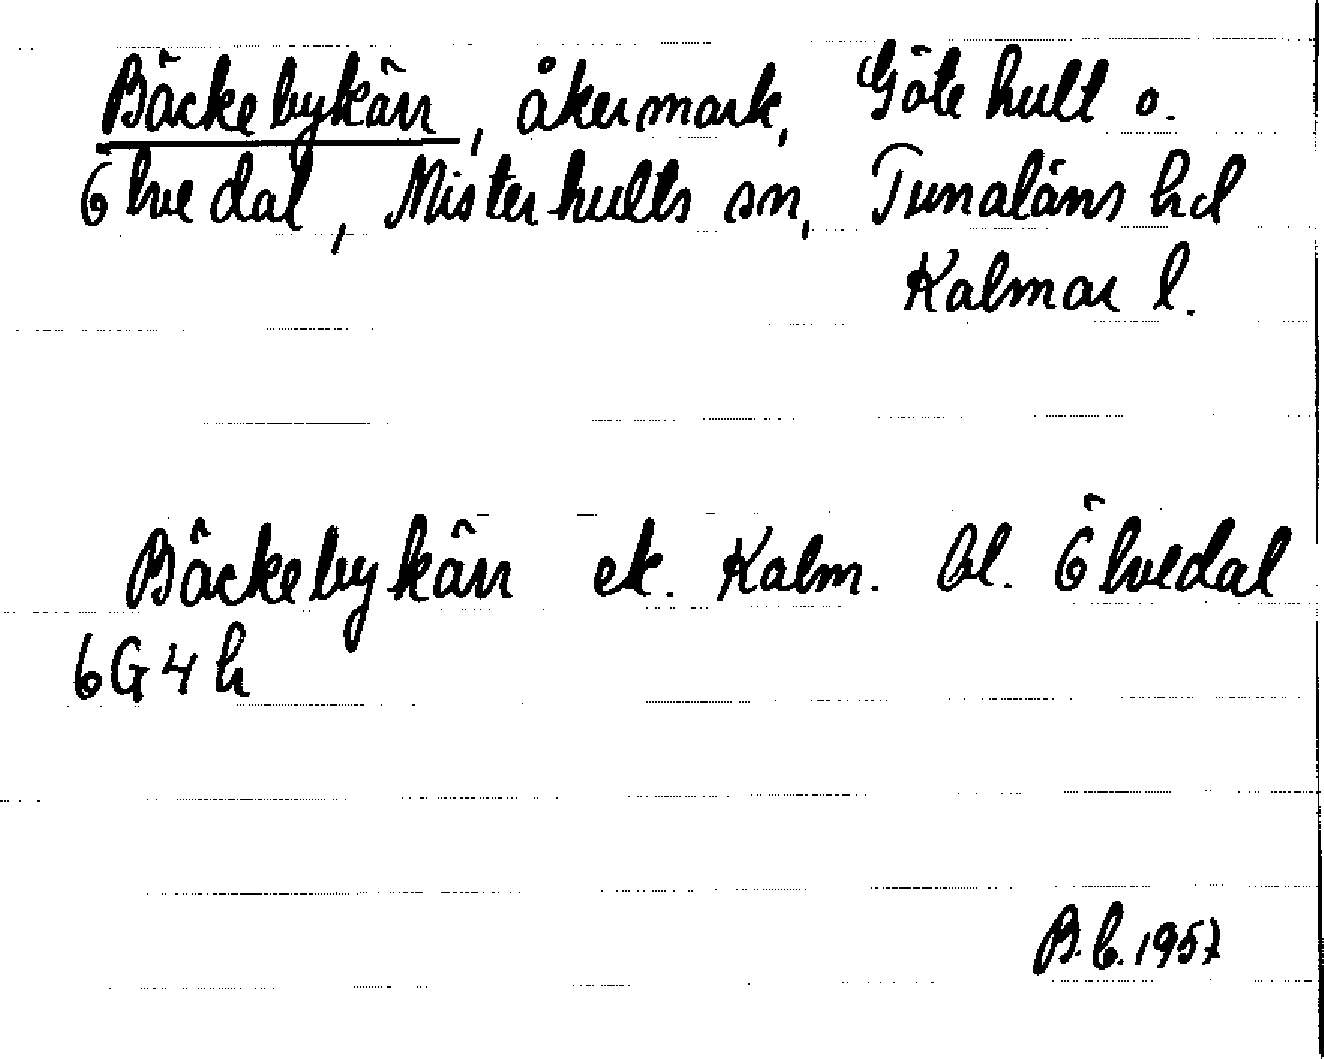 Bäckebykärr, åkermark, Götehult o.
Ölvedal, Misterhults sn, Tunaläns hd
Kalmar l.
Bäckebykärr ek. Kalm. bl. Ölvedal
6G4h
B.C. 1957